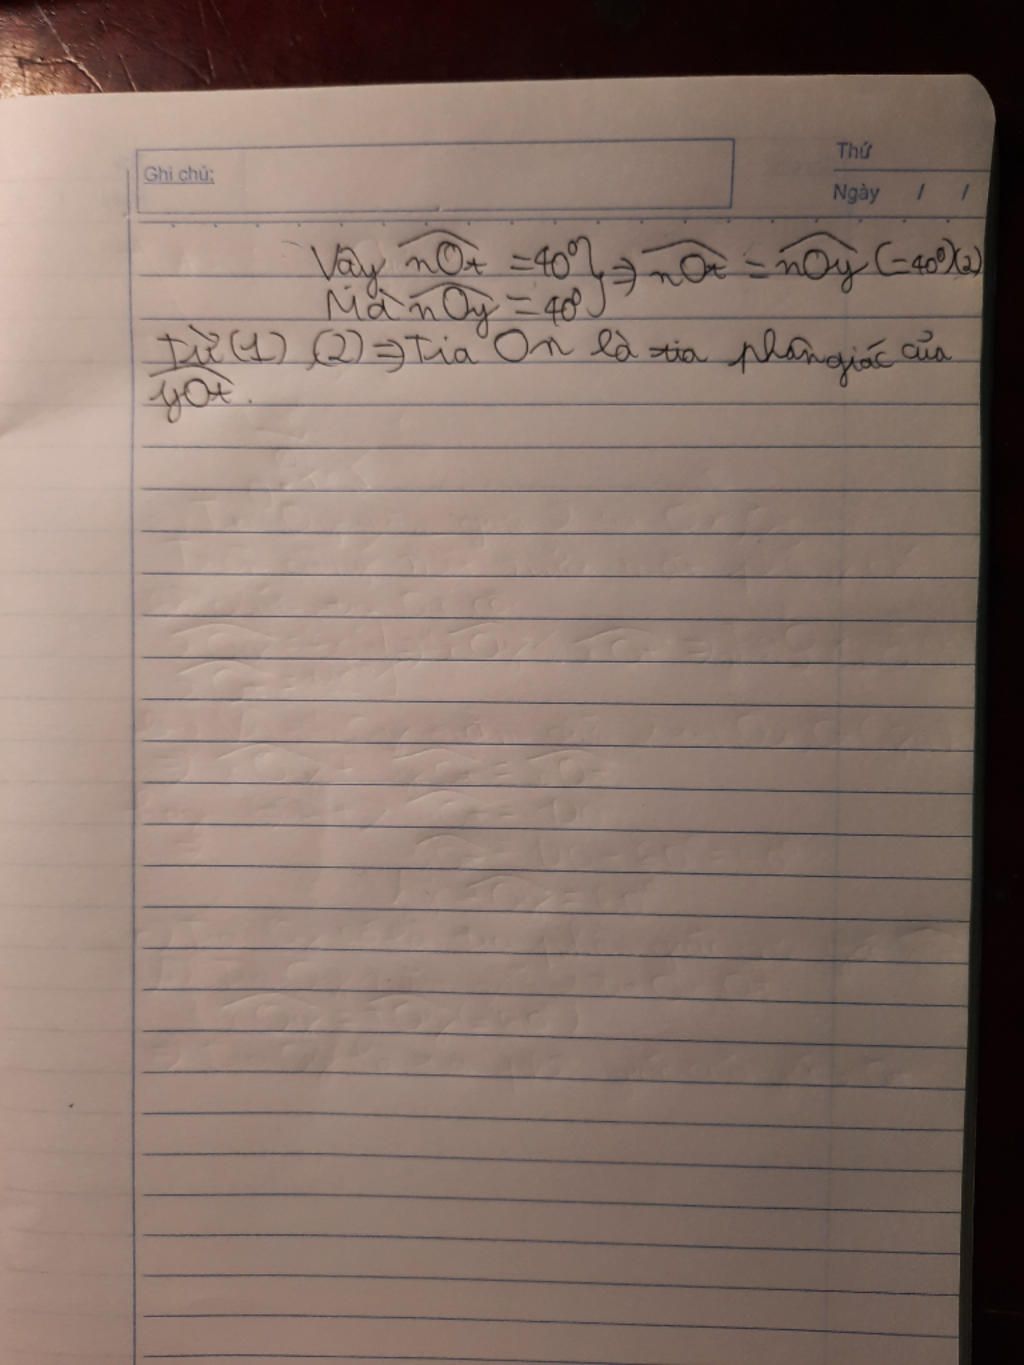 Ghi chú:
Thứ
Ngày / /
Vậy nOt = 40⁰} ⇒ nOt = nOy (=40⁰)(2)
Mà nOy = 40⁰
Từ (1) (2) ⇒ Tia On là tia phân giác của
yOt.